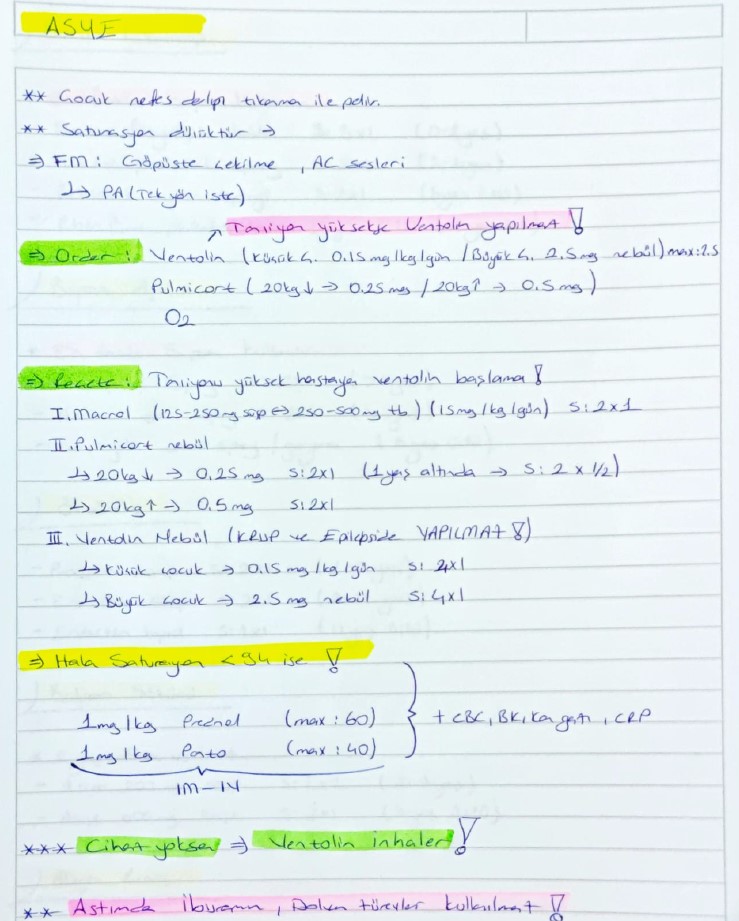 ASYE
** Çocuk nefes darlığı tıkanma ile gelir.
** Saturasyon düşüktür →
⇒ FM: Göğüste çekilme, AC sesleri
↳ PA (Tek yön iste)
↗ Tansiyon yüksekse Ventolin yapılmaz !
⇒ Order: Ventolin (Küçük Ç. 0.15 mg/kg/gün / Büyük Ç. 2.5 mg nebül) max: 2.5
Pulmicort (20kg↓ → 0.25 mg / 20kg↑ → 0.5 mg)
O2
⇒ Reçete: Tansiyonu yüksek hastaya ventolin başlama !
I. Macrol (125-250 mg süsp ⇔ 250-500 mg tb) (15mg/kg/gün) S: 2x1
II. Pulmicort nebül
↳ 20kg↓ → 0.25 mg S: 2x1 (1 yaş altında → S: 2 x 1/2)
↳ 20kg↑ → 0.5 mg S: 2x1
III. Ventolin Nebül (KRUP ve Epilepside YAPILMAZ !)
↳ Küçük çocuk → 0.15 mg/kg/gün S: 4x1
↳ Büyük çocuk → 2.5 mg nebül S: 4x1
⇒ Hala Saturasyon < 94 ise !
1mg/kg Prednol (max: 60) } + CBC, BK, Kan gazı, CRP
1mg/kg Panto (max: 40)
IM-IV
*** Cihaz yoksa ⇒ Ventolin inhaler !
** Astımda türevler kullanılmaz !